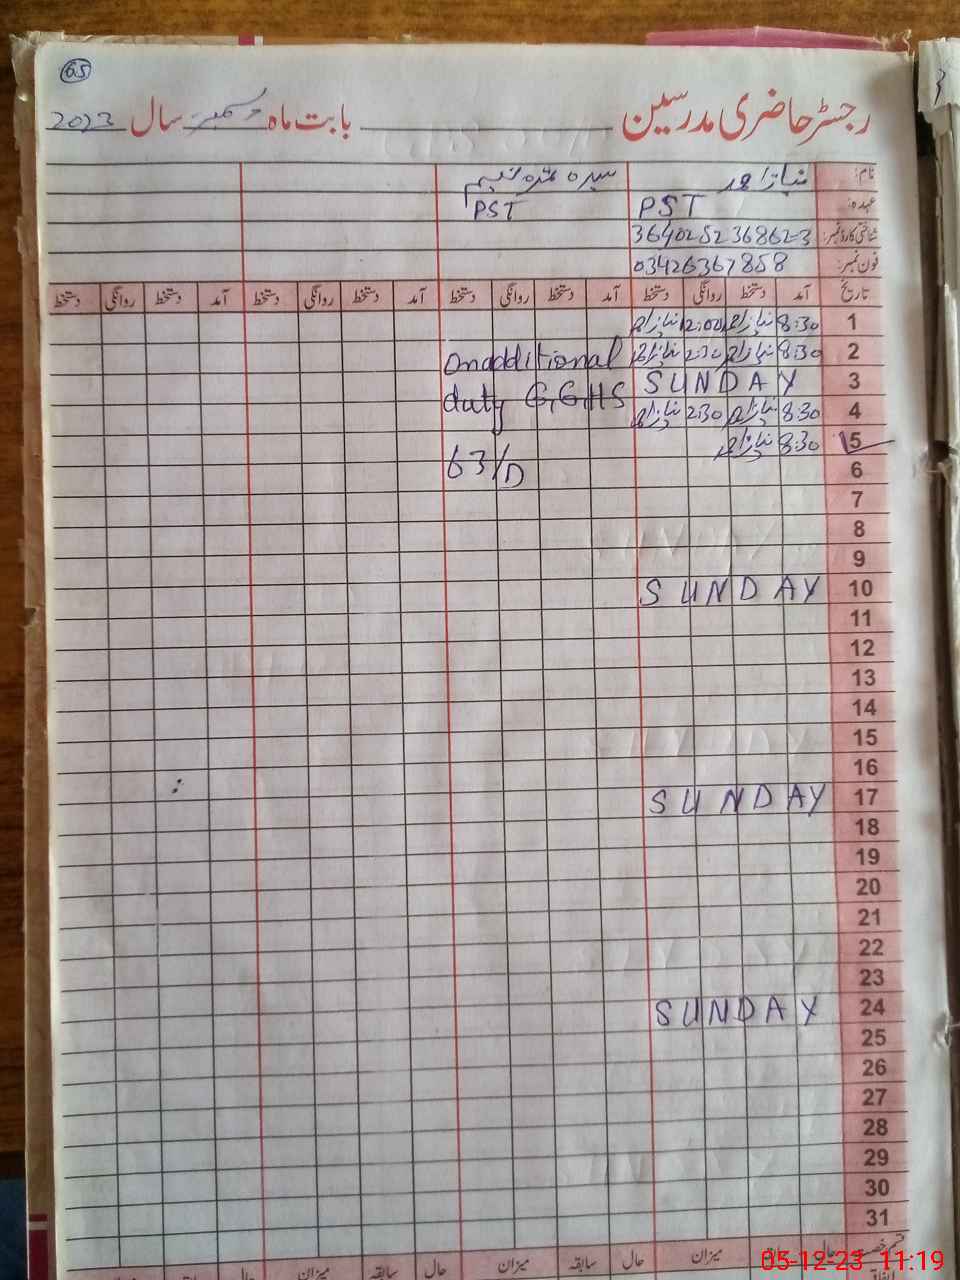 65
رجسٹر حاضری مدرسین بابت ماہ دسمبر سال 2023
نام: نیاز احمد سیدہ نسیم
عہدہ: PST PST
شناختی کارڈ نمبر: 3640252368623
فون نمبر: 03426367858
تاریخ آمد دستخط روانگی دستخط آمد دستخط روانگی دستخط آمد دستخط روانگی دستخط آمد دستخط روانگی دستخط
1 8:30 نیاز احمد 12:00 نیاز احمد
2 8:30 نیاز احمد 2:30 نیاز احمد On additional
3 SUNDAY duty G.G.HS
4 8:30 نیاز احمد 2:30 نیاز احمد
5 8:30 نیاز احمد
6 63/D
7
8
9
10 SUNDAY
11
12
13
14
15
16
17 SUNDAY
18
19
20
21
22
23
24 SUNDAY
25
26
27
28
29
30
31
حال سابقہ میزان حال سابقہ میزان حال سابقہ میزان حال
05-12-23 11:19